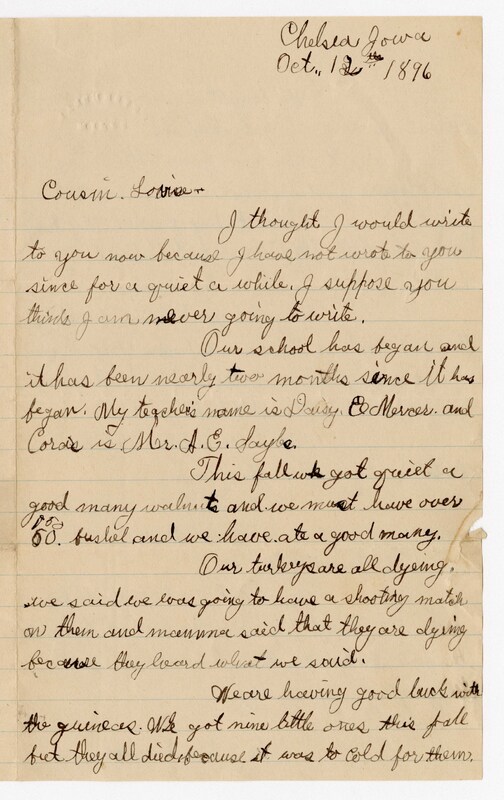 Chelsea Iowa
Oct., 12th 1896
Cousin. Louise-
I thought I would write
to you now because I have not wrote to you
since for a quiet a while. I suppose you
think I am never going to write.
Our school has began and
it has been nearly two months since it has
began. My teacher's name is Daisy. E Mercer. and
Cora's is Mr. A. E.
This fall we got quiet a
good many walnuts and we must have over
bushel and we have ate a good many.
Our turkeys are all dyeing.
we said we was going to have a shooting match
on them and mamma said that they are dying
because they heard what we said.
We are having good luck with
the guineas. We got nine little ones this fall
but they all died because it was to cold for them.